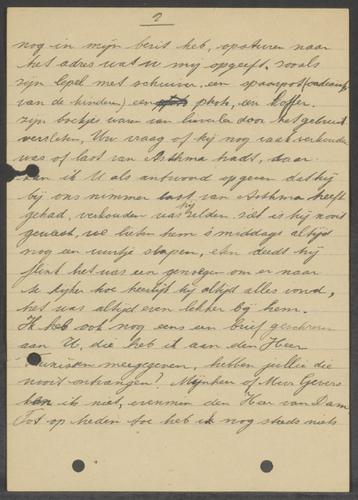 2
nog in mijn bezit heb, opsturen naar
het adres wat U mij opgeeft. zooals
zijn lepel met schuiver, een spaarpot (cadeautje
van de kinderen) een photo, een koffer.
zijn boekje waren van lieverlee door het gebruik
versleten, Uw vraag of hij nog vaak verkouden
was of last van Asthma hadt, daar
kan ik U als antwoord opgeven dat hij
bij ons nimmer last van Asthma heeft
gehad, verkouden was hij zelden. Ziek is hij nooit
geweest, we lieten hem 's middags altijd
nog een uurtje slapen, eten deedt hij
flink het was een genoegen om er naar
te kijken hoe heerlijk hij altijd alles vond,
het was altijd even lekker bij hem.
Ik heb ook nog eens een brief geschreven
aan U, die heb ik aan den Heer
meegegeven, hebben jullie die
nooit ontvangen? Mijnheer of Mevr Gevers
ken ik niet, evenmin den Heer van Dam
Tot op heden toe heb ik nog steeds niets